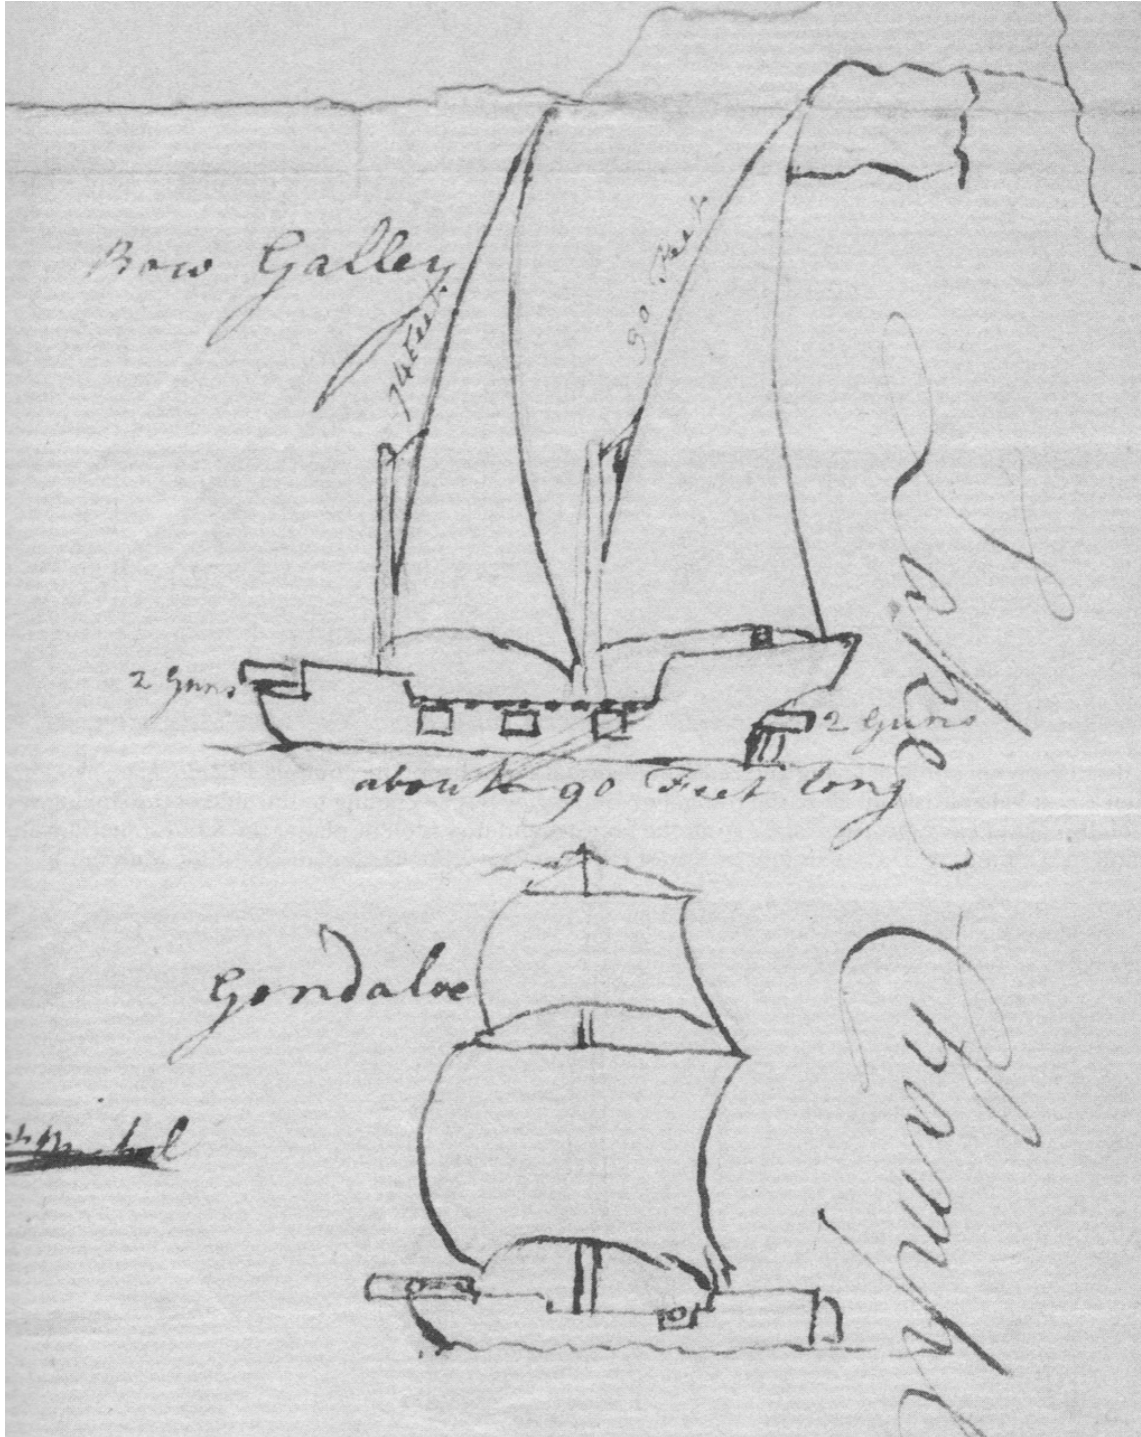 Row Galley
74 Feet
90 Feet
2 Guns
2 Guns
about 90 Feet long
Gondaloe
Lake
Champl